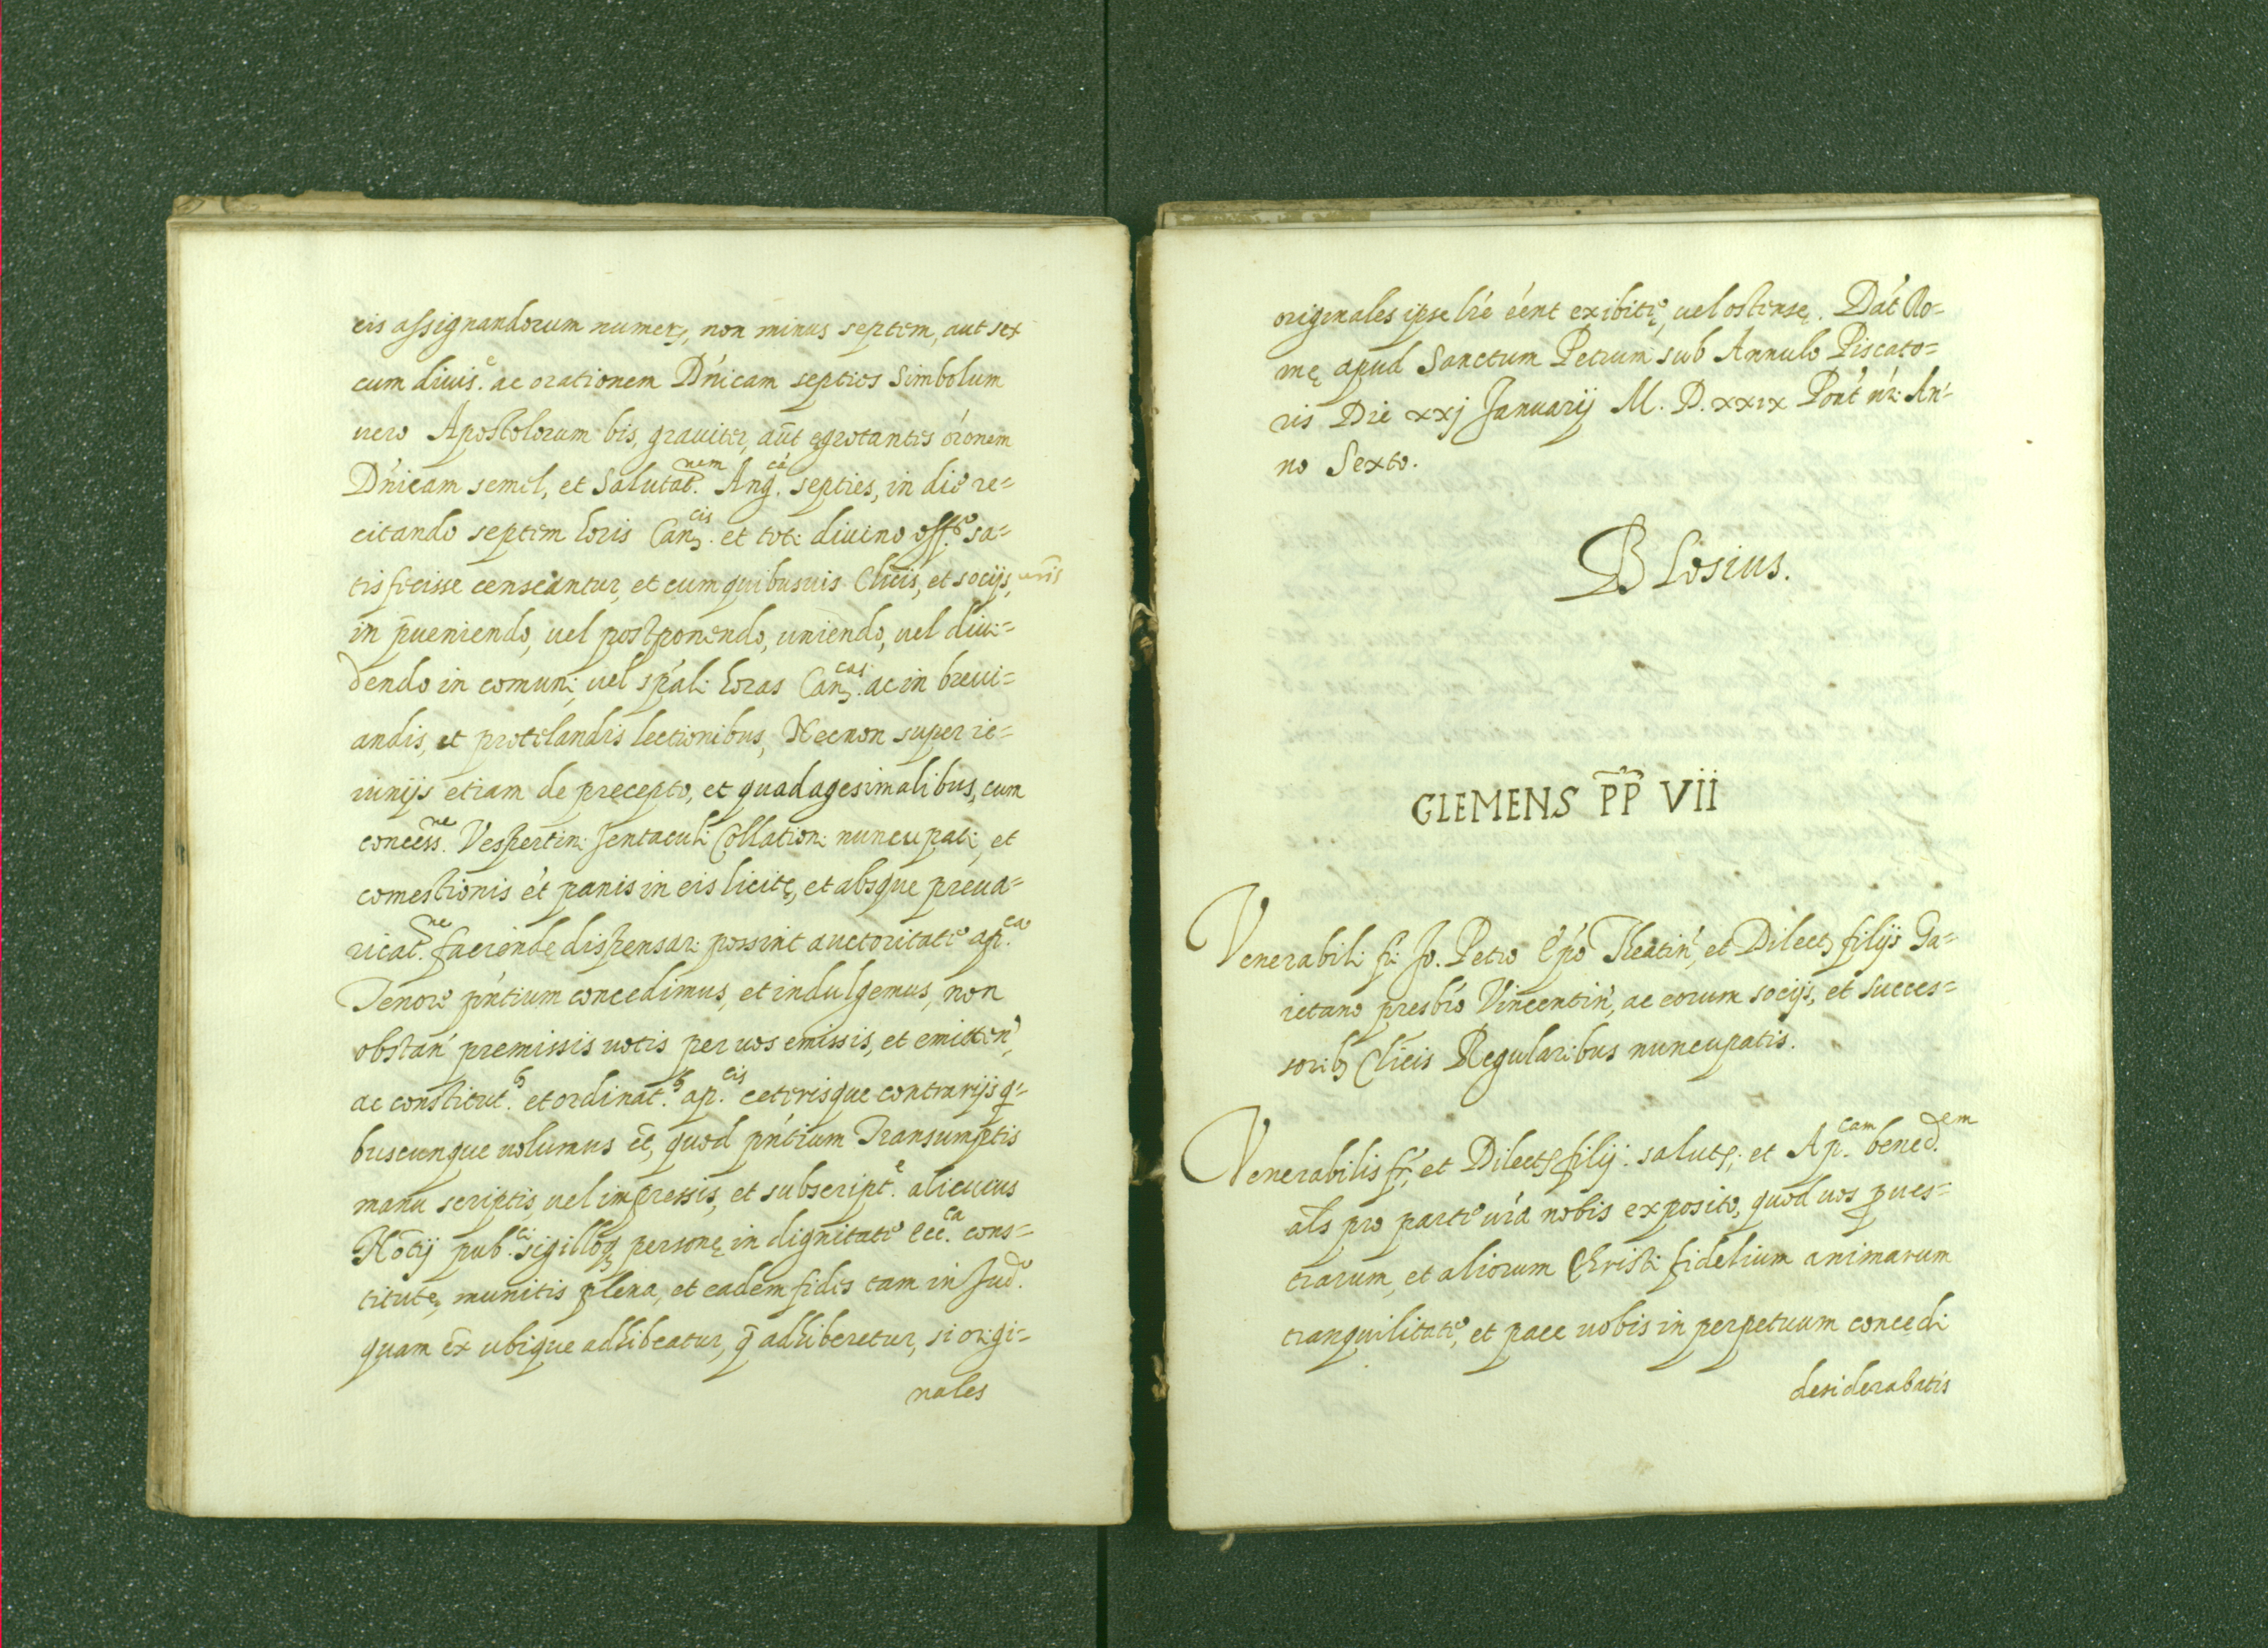 eis assignandorum numerꝫ, non minus septem, aut sex
cum diuis.ᵉ ac orationem Dn̄icam septies Simbolum
uero Apostolorum bis, grauiter, aūt ęgrotantes óronem
Dn̄icam semel, et Salutat.ⁿᵉᵐ Ang.ᶜᵃ septies, in die re=
citando septem horis Canꝫ.ᶜⁱˢ et tot: diuino off.º sa=
tisfecisse censeantur, et cum quibusuis Cl̄icis, et socijs, ur̄is
in p̄ueniendo, uel postponendo, uniendo, uel diui=
dendo in comuni, uel spáli horas Canꝫ.ᶜᵃˢ ac in breui=
andis, et protelandis lectionibus, Necnon super ie=
iunijs etiam de pręcepto, et quadagesimalibus, cum
concess.ⁿᵉ Vespertin: Jentaculi Collation: nuncupati, et
comestionis ét panis in eis licitę, et absque preua=
ricat.ⁿᵉ faciendę dispensari possint auctoritate ap.ᶜᵃ
Tenore pńtium concedimus, et indulgemus, non
obstań premissis uotis per uos emissis, et emitteń,
ac constitut.ᵇ et ordinat.ᵇ ap.ᶜⁱˢ ceterisque contrarijs q=
buscunque uolumus ēt, quod pńtium Transumptis
manu scriptis, uel impressis, et subscript.ᵉ alicuius
Notīj pub.ᶜⁱ sigilloq personę in dignitate Ecc.ᶜᵃ cons=
titutę munitis plena, et eadem fides tam in Jud.º
quam ex̄ ubique adhibeatur, q̄ adhiberetur, si origi=
nales
originales ipse lr̄é éént exibitę, uel ostensę. Dat́ Ro=
mę apud Sanctum Petrum sub Annulo Piscato=
ris Die xxj Januarij M. D. xxix Pont́ nŕ: An=
no Sexto.
Blosius.
CLEMENS P̄P̄ VII
Venerabili fr̄: Jo. Petro Ep̄o Theatiń, et Dilectꝫ filijs Ga=
ietano presbr̄o Vincentiń, ac eorum socijs, et succes=
soribꝫ Cl̄icis Regularibus nuncupatis.
Venerabilis fr̄: et Dilectꝫ filij: salutꝫ: et Ap.ᶜᵃᵐ bened.ᵉᵐ
al̄s pro parte ur̄a nobis exposito, quod uos p ues=
trarum, et aliorum Christi fidelium animarum
tranquilitate, et pace uobis in perpetuum concedi
desiderabatis